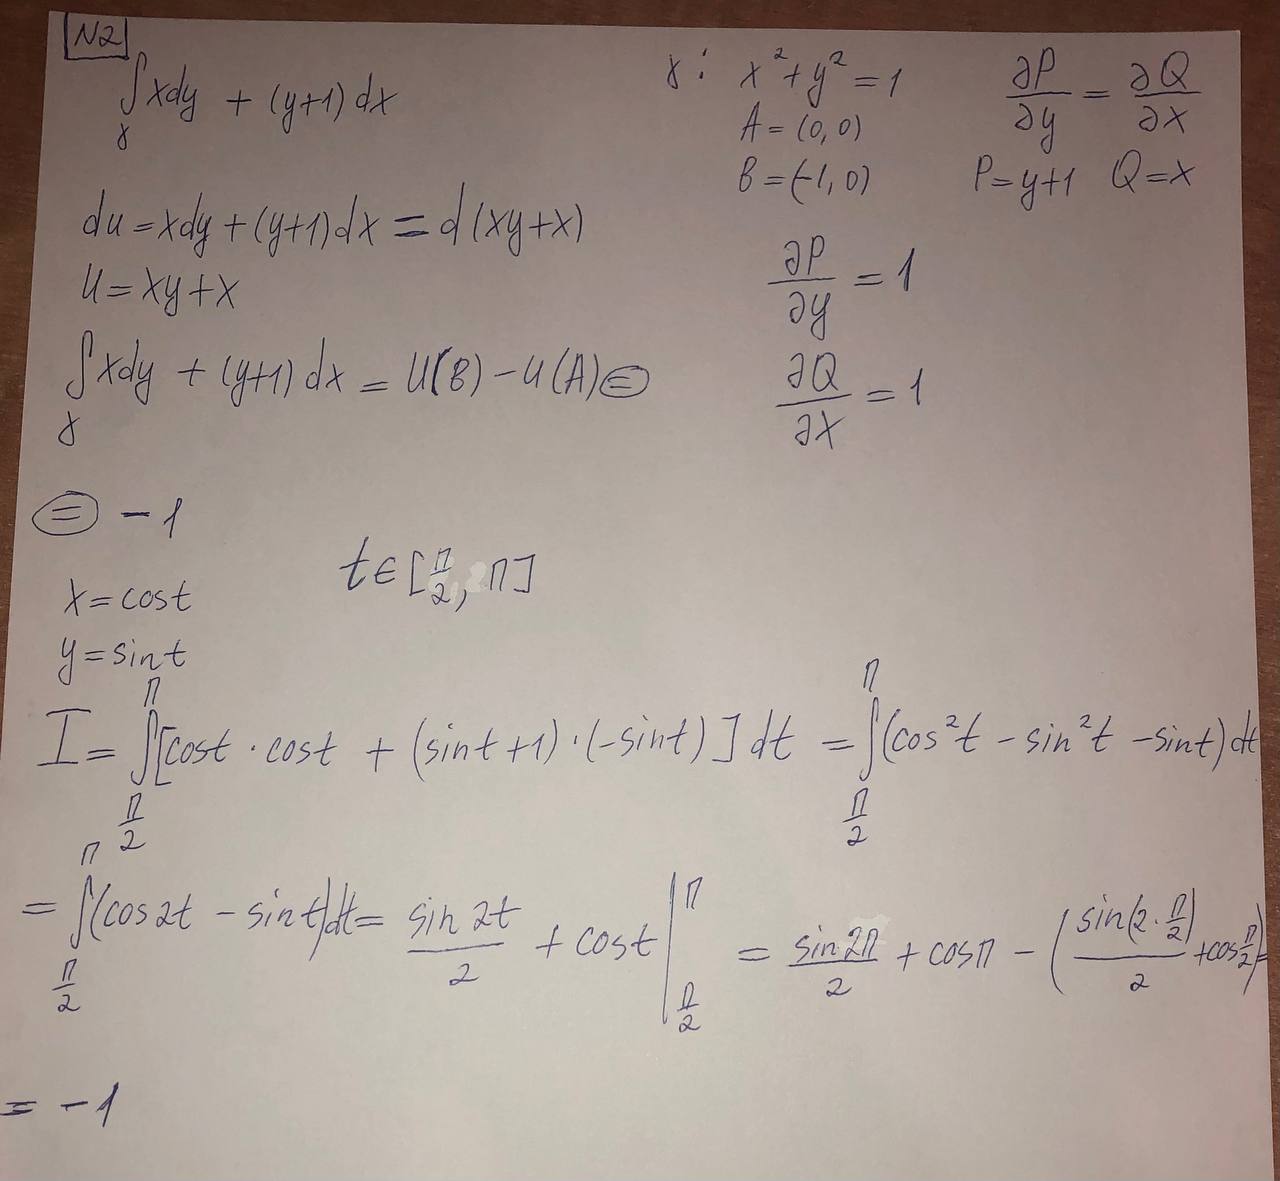 N2
∫_γ xdy + (y+1)dx
γ: x² + y² = 1
A = (0, 0)
B = (-1, 0)
∂P/∂y = ∂Q/∂x
P = y+1 Q = x
du = xdy + (y+1)dx = d(xy+x)
u = xy+x
∂P/∂y = 1
∂Q/∂x = 1
∫_γ xdy + (y+1)dx = u(B) - u(A) =
= -1
x = cost
y = sint
t∈[π/2, π]
I = ∫_{π/2}^{π} [cost · cost + (sint+1)·(-sint)]dt = ∫_{π/2}^{π} (cos²t - sin²t - sint)dt
= ∫_{π/2}^{π} (cos2t - sint)dt = sin2t/2 + cost |_{π/2}^{π} = sin2π/2 + cosπ - (sin(2·π/2)/2 + cos π/2) =
= -1